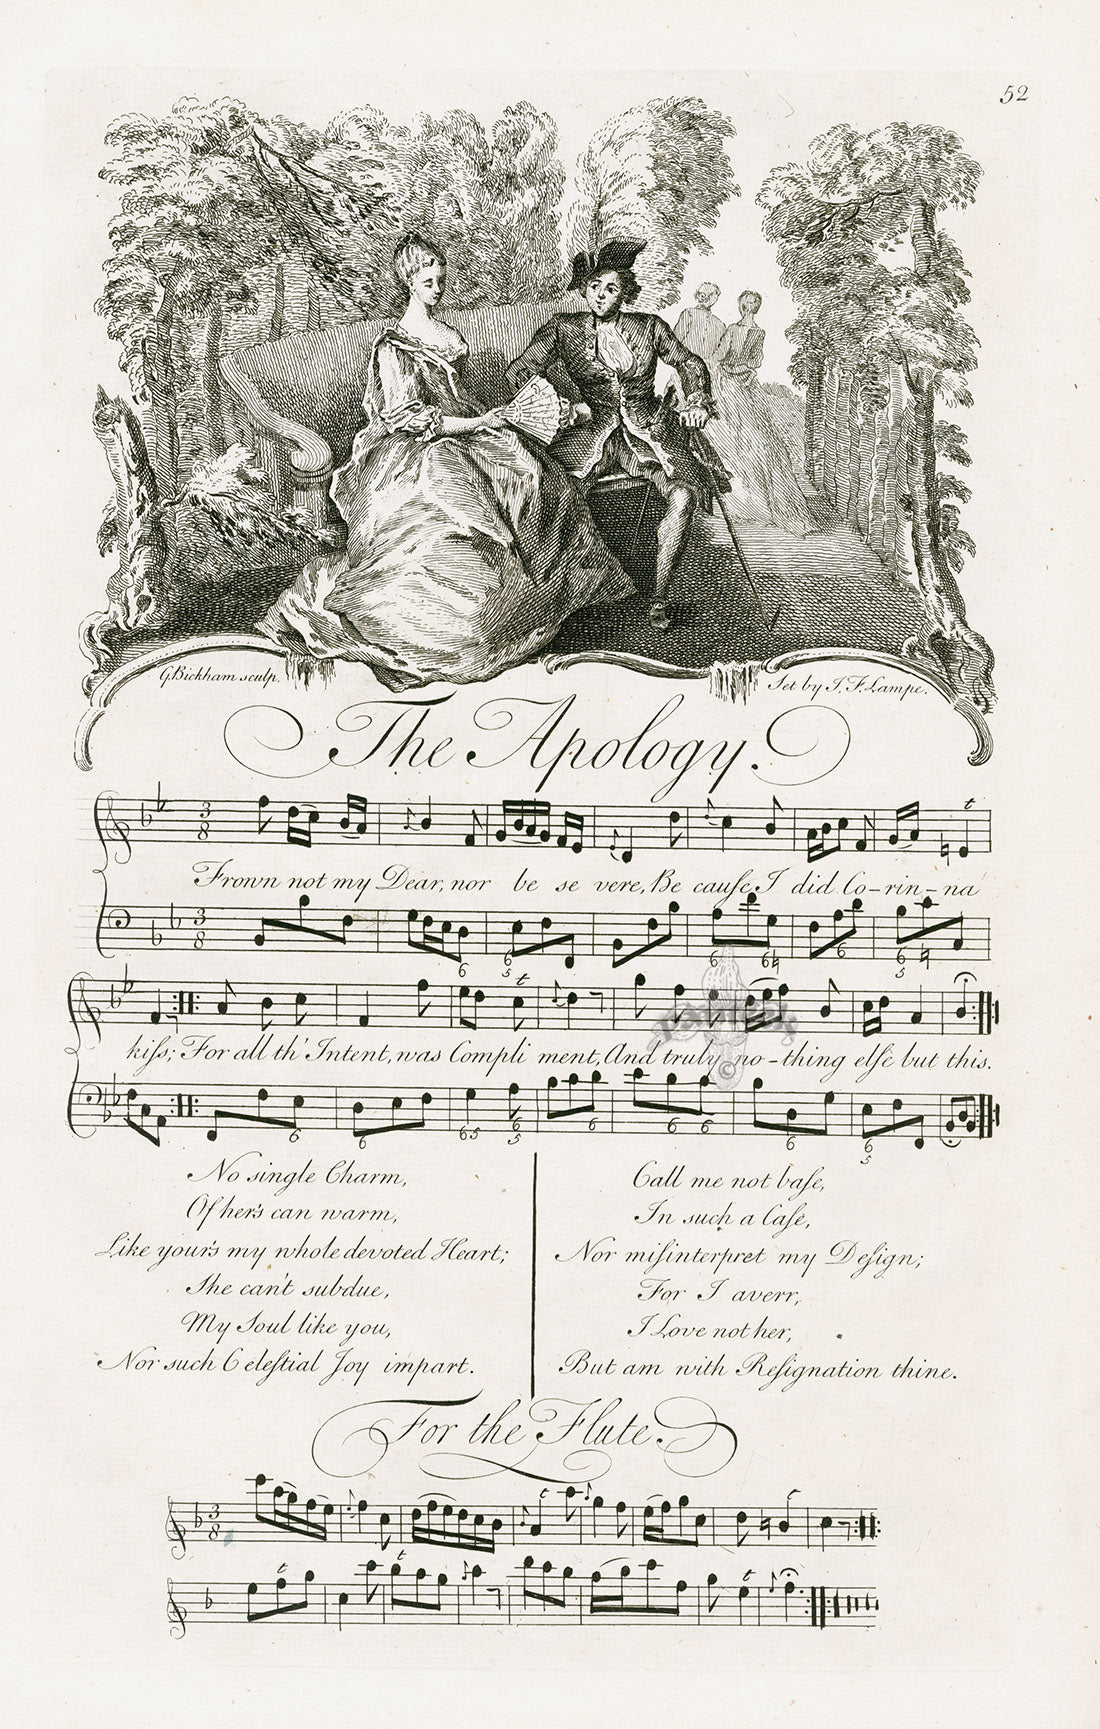 52
G. Bickham sculp.
Set by J. F. Lampe.
The Apology.
Frown not my Dear, nor be se vere, Be cauſe I did Co-rin-na
kiſs; For all th' Intent, was Compli ment, And truly no-thing elſe but this.
No single Charm,
Of her's can warm,
Like your's my whole devoted Heart;
She can't subdue,
My Soul like you,
Nor such Celeſtial Joy impart.
Call me not baſe,
In such a Caſe,
Nor miſinterpret my Deſign;
For I averr,
I Love not her,
But am with Reſignation thine.
For the Flute.